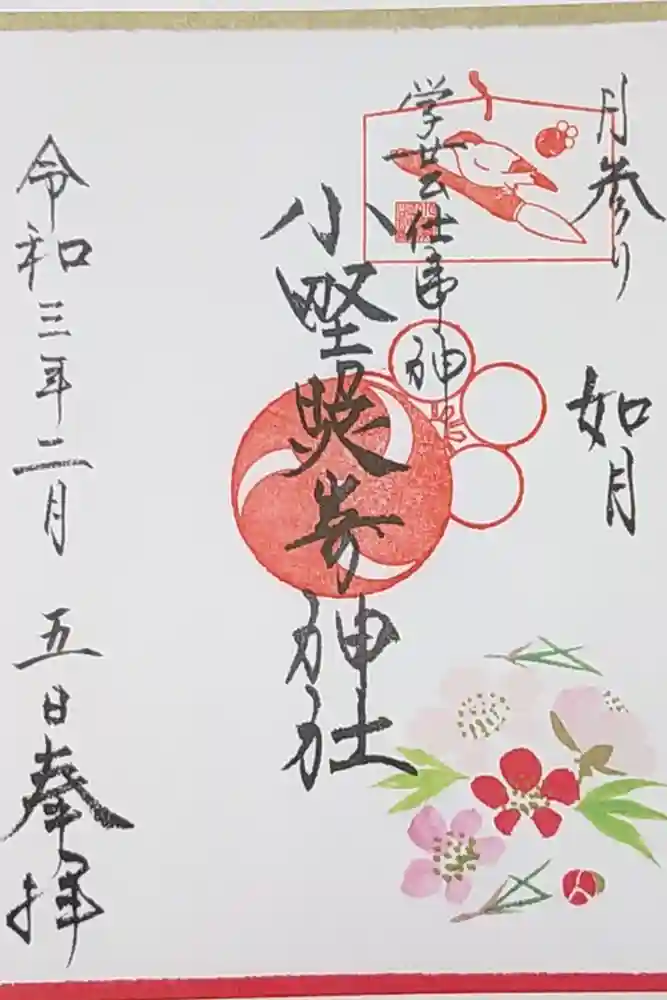 月参り 如月
学芸仕事神
小野照崎神社
令和三年二月 五日奉拝